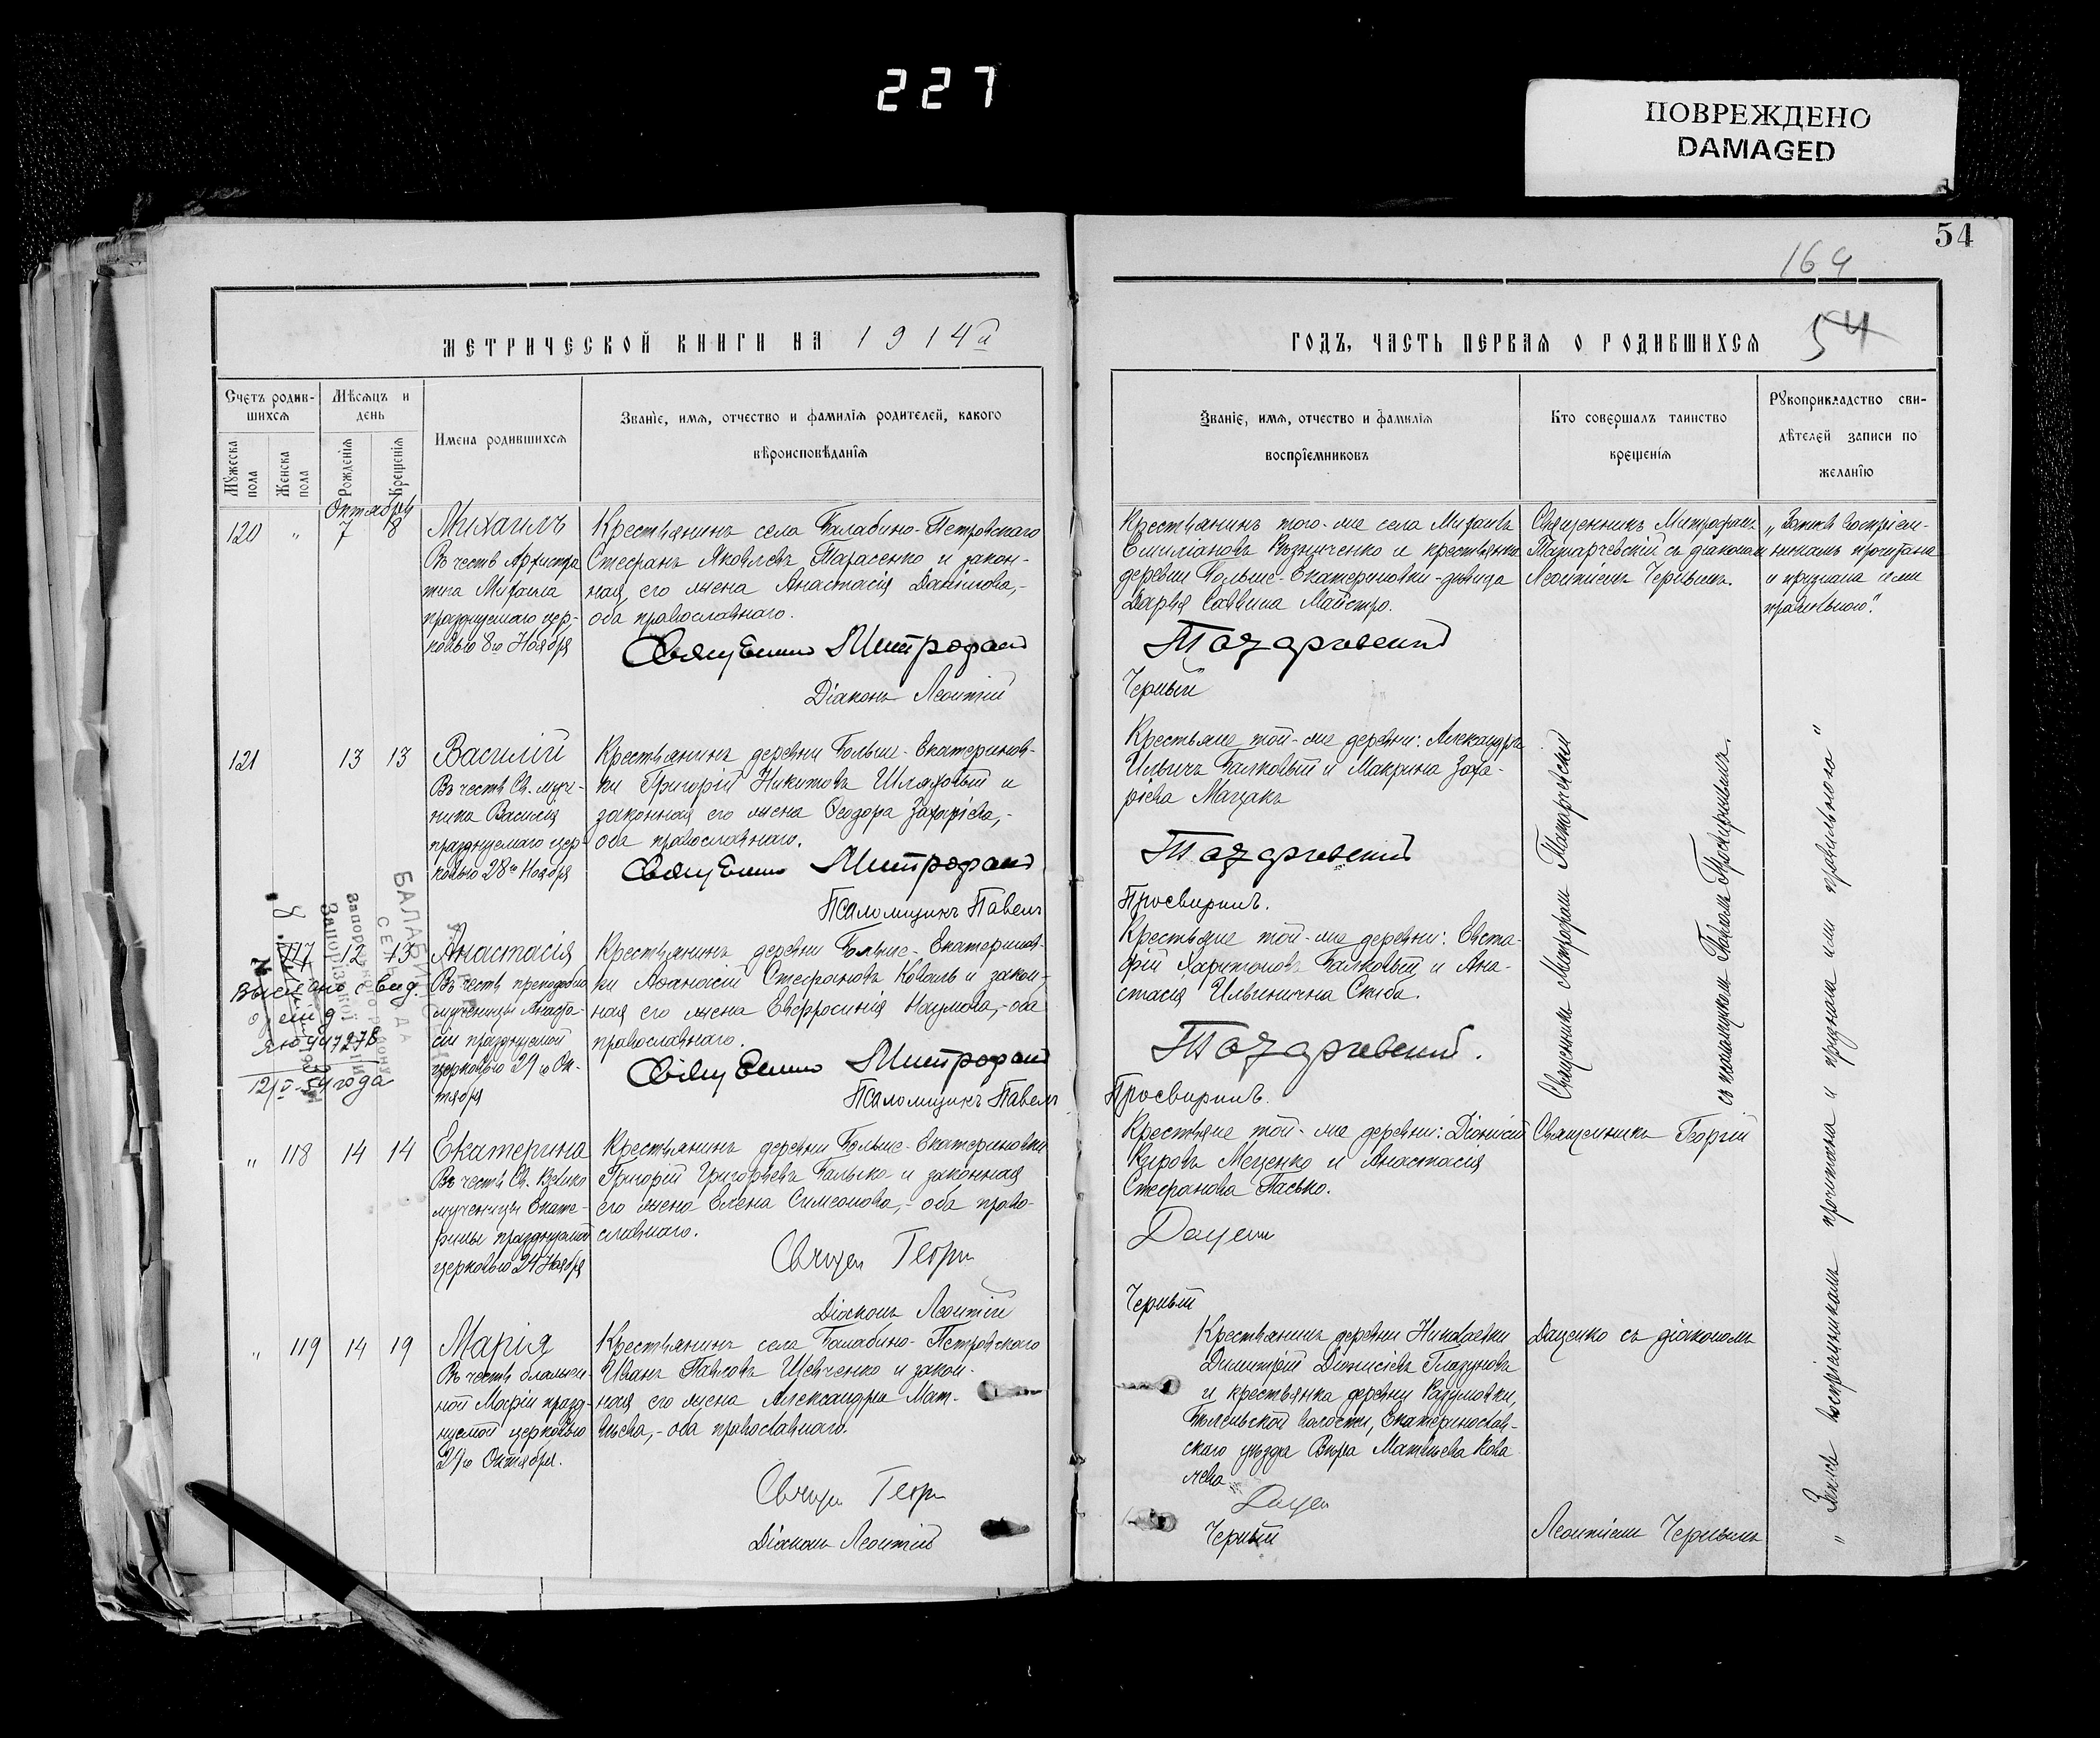 227
ПОВРЕЖДЕНО
DAMAGED
54
164
54
МЕТРИЧЕСКОЙ КНИГИ НА 1914й
ГОДЪ, ЧАСТЬ ПЕРВАЯ О РОДИВШИХСЯ
Счетъ родив-
шихся
Мѣсяцъ и
день
Мужеска
пола
Женска
пола
Рожденія
Крещенія
Имена родившихся
Званіе, имя, отчество и фамилія родителей, какого
вѣроисповѣданія
Званіе, имя, отчество и фамилія
воспріемниковъ
Кто совершалъ таинство
крещенія
Рукоприкладство сви-
дѣтелей записи по
желанію
Октябрь
120 " 7 8
Михаилъ
Въ честь Архистра
тига Михаила
празднуемаго цер-
ковью 8го Ноября
Крестьянинъ села Балабино-Петровскаго
Стефанъ Яковлевъ Тарасенко и закон-
ная его жена Анастасія Данилова,-
оба православнаго.
Священник Митрофан
Діаконъ Леонтій
Крестьянинъ того-же села Михаилъ
Емиліановъ и крестьянка
деревни Больше-Екатериновки-девица
Дарья Саввина Майстро.
Татарчевский
Черный
Священникъ Митрофанъ
Татарчевскій съ діакономъ
Леонтіемъ Чернымъ.
"Запись воспріем-
никамъ прочитана
и признана ими
правильною".
121 13 13
Василій
Въ честь Св. муче-
ника Василія
празднуемаго цер-
ковью 28го Ноября
Крестьянинъ деревни Больше-Екатеринов-
ки Григорій Никитовъ Шляховый и
законная его жена Ѳеодора Захаріева,-
оба православнаго.
Священник Митрофан
Псаломщикъ Павелъ
Крестьяне той-же деревни: Александръ
Ильичъ Балковый и Макрина Заха-
ріева Мацакъ
Татарчевский
Просвиринъ.
Священникъ Митрофанъ Татарчевскій
съ псаломщикомъ Павломъ Просвиринымъ.
117 12 13
Выслано свид.
о рожд.
ЯЮ 447278
12/V-54 года
Анастасія
Въ честь преподобно
мученицы Анаста-
сіи празднуемой
церковью 29го Ок-
тября
Крестьянинъ деревни Больше-Екатеринов-
ки Аѳанасій Стефановъ Коваль и закон-
ная его жена Евфросинія Наумова,-оба
православнаго.
Священник Митрофан
Псаломщикъ Павелъ
Крестьяне той-же деревни: Евста-
фій Харитоновъ Балковый и Ана-
стасія Ильинична Скиба.
Татарчевский.
Просвиринъ.
" 118 14 14
Екатерина
Въ честь Св. Велико
мученицы Екате-
рины празднуемой
церковью 24 Ноября
Крестьянинъ деревни Больше-Екатериновки
Григорій Григорьевъ Балыко и законная
его жена Елена Симеонова,-оба право-
славнаго.
Священ Георги
Діаконъ Леонтій
Крестьяне той-же деревни: Діонисій
Кировъ Меценко и Анастасія
Стефанова Пасько.
Даценко
Черный
Священникъ Георгій
" 119 14 19
Марія
Въ честь
ной Маріи празд-
нуемой церковью
29го Октября.
Крестьянинъ села Балабино-Петровскаго
Иванъ Павловъ Шевченко и закон-
ная его жена Александра Мат-
вѣева,-оба православнаго.
Священ Георги
Діаконъ Леонтій
Крестьянинъ деревни Николаевки
Димитрій Діонисіевъ Глазуновъ
и крестьянка деревни Разумовки,
волости, Екатеринослав-
скаго уѣзда Вѣра Матвѣева Кова
лева
Дацен
Черный
Даценко съ діакономъ
Леонтіемъ Чернымъ
"Запись воспріемникамъ прочитана и признана ими правильною"